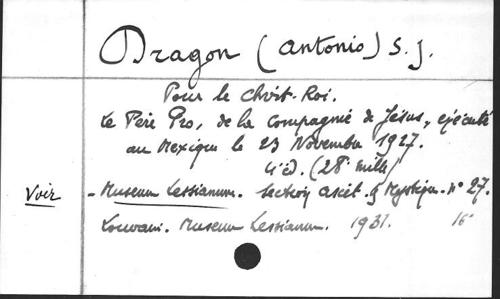 Dragon (Antonio) S.J.
Pour le Christ-Roi.
Le Père Pro, de la Compagnie de Jésus, exécuté
au Mexique le 23 Novembre 1927.
4e éd. (28e mille)
Voir - Museum Lessianum. Section ascét. & Mystique. N° 27.
Louvain. Museum Lessianum. 1931. 16°